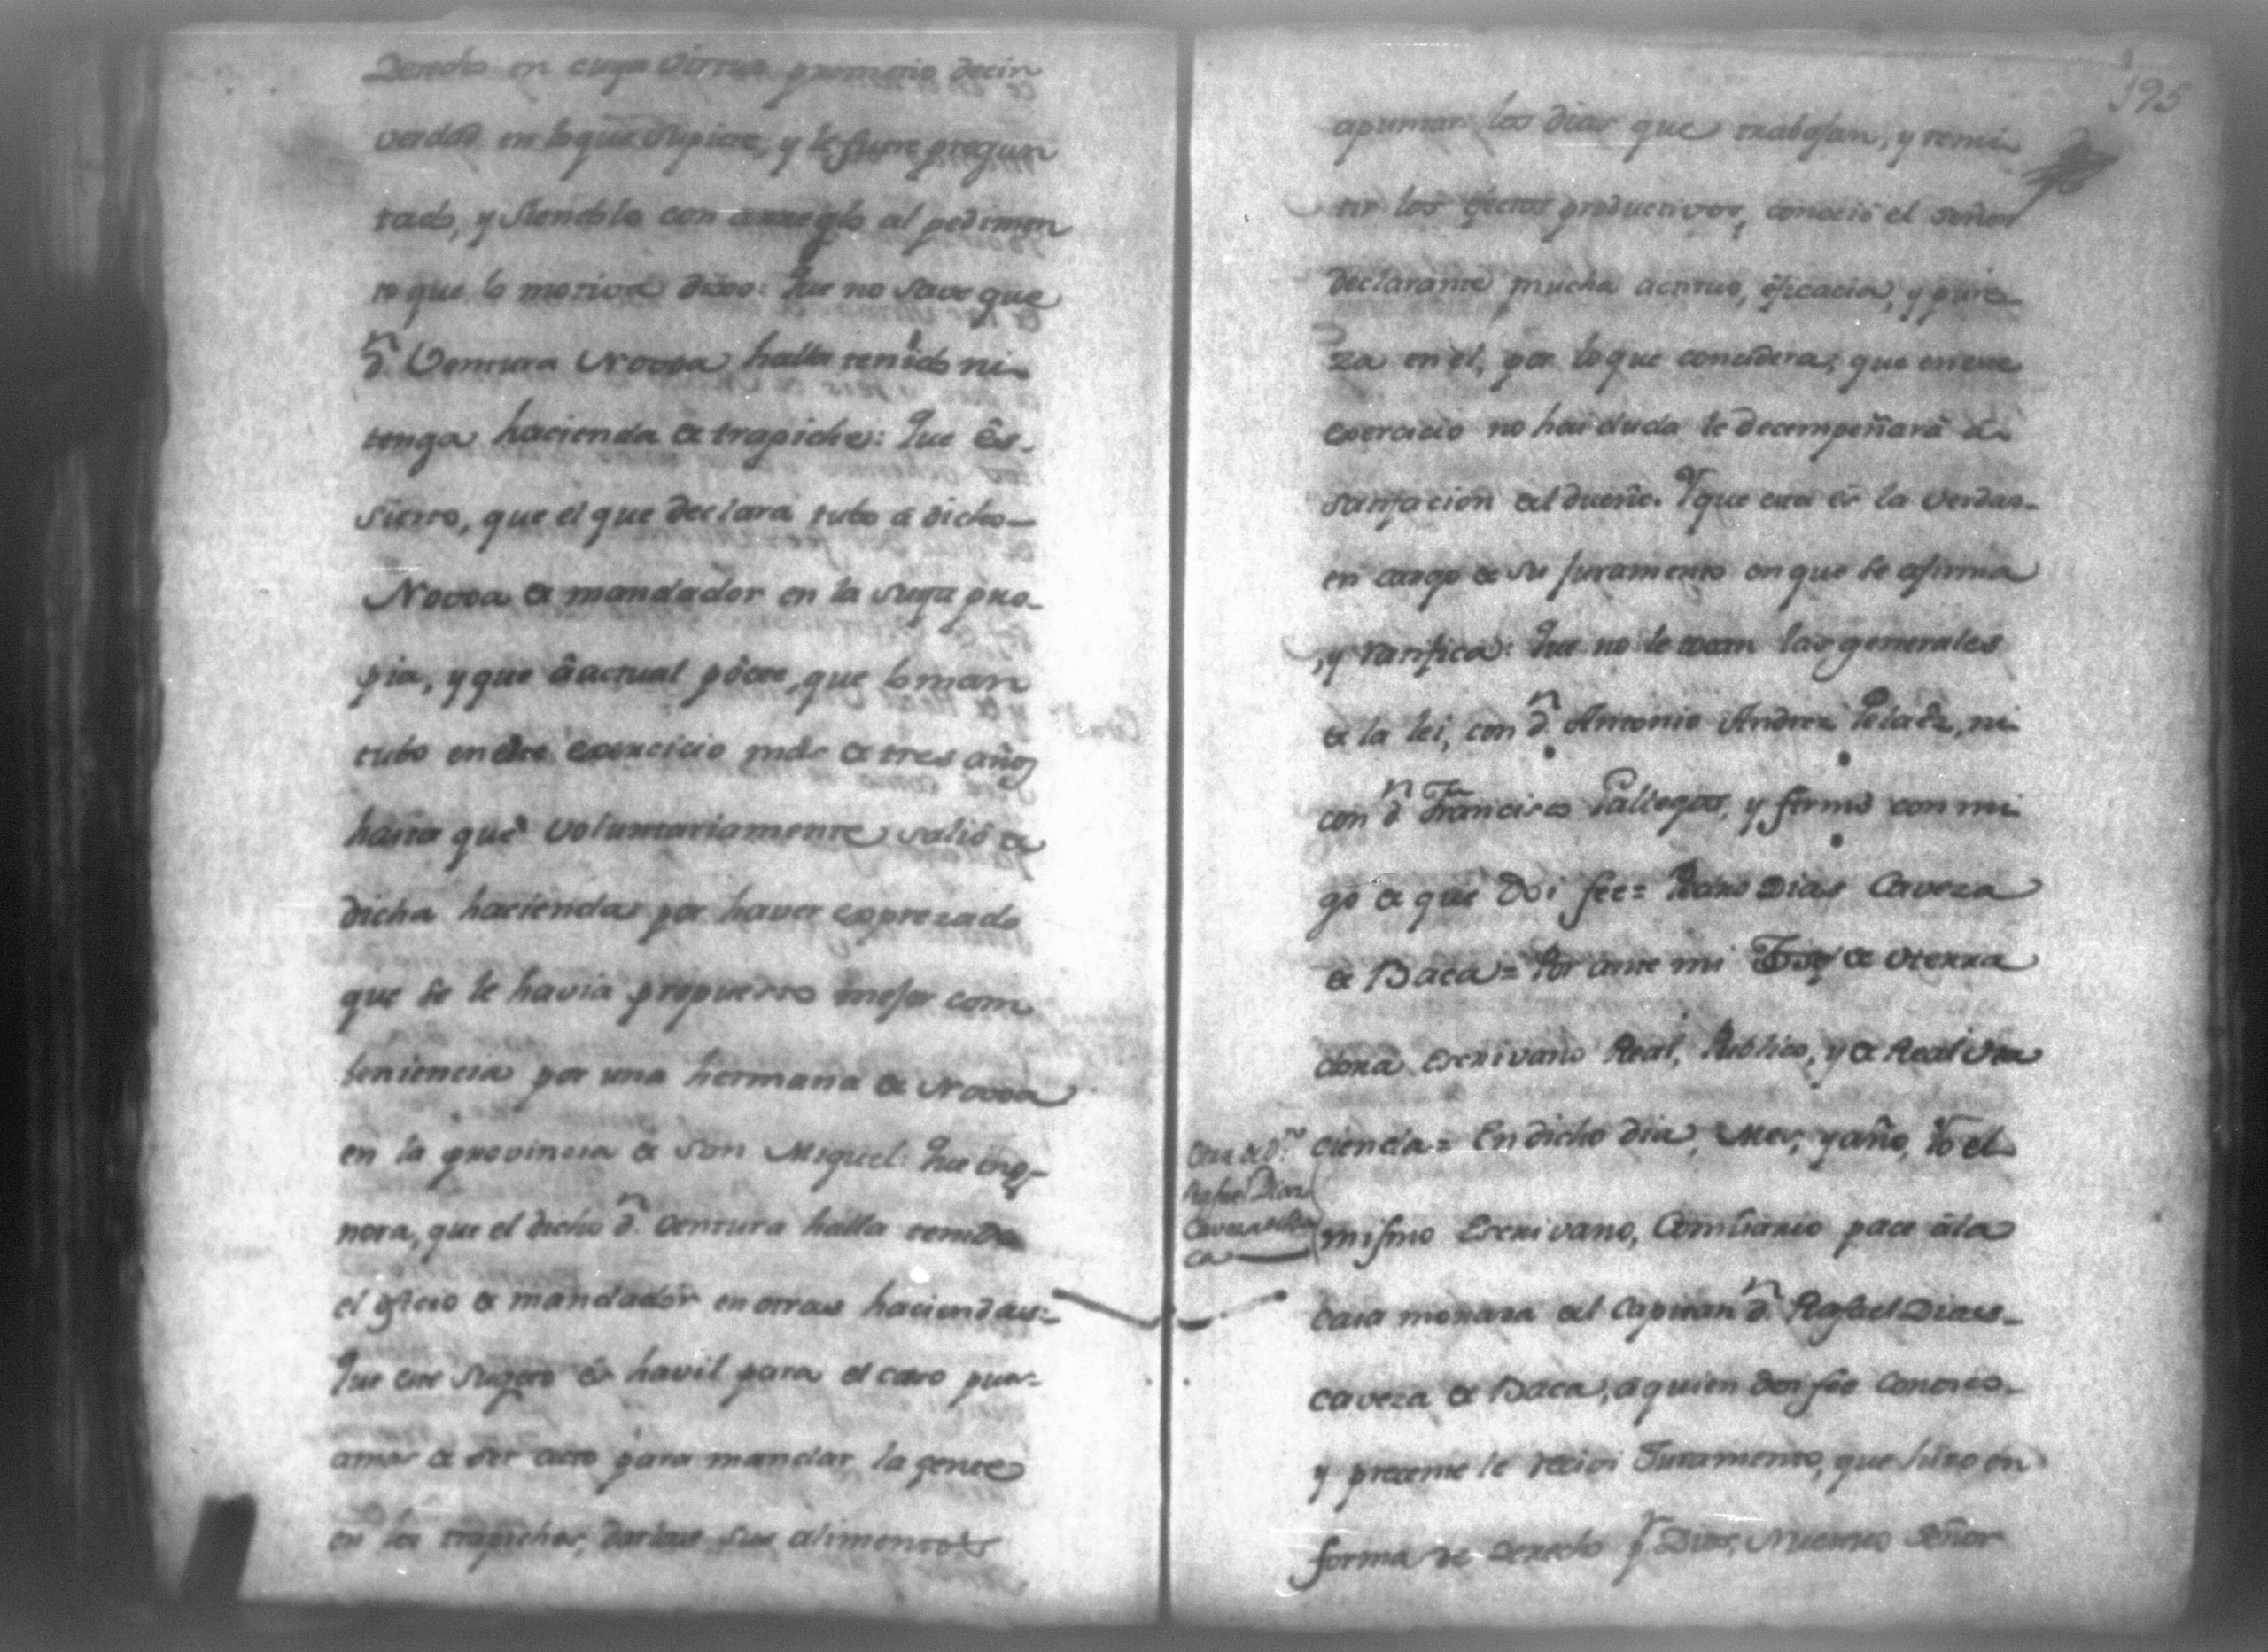 Derecho en cuya virtud prometio decir
verdad en loque supiere, y le fuere pregun
tado, y siendolo con arreglo al pedimen
to que lo motiva dixo: Que no save que
dn. Ventura Novoa halla tenido ni
tenga hacienda de trapiche: Que es
sierto, que el que declara tubo a dicho
Novoa de mandador en la suya pro
pia, y que actual que lo man
tubo en este exercicio más de tres años
hasta que voluntariamente salió de
dicha hacienda por haver exprezado
que se le havia propuesto mejor com
beniencia por una hermana de Novoa
en la provincia de San Miguel: Que ing
nora, que el dicho dn. Ventura halla tenido
el oficio de mandador en otras haciendas:
Que ese sugeto és havil para el caso pues
amas de ser acto para mandar la gente
en los trapiches, darles sus alimentos
395
apuntar los dias que trabajan, y remi
tir los efectos productivos, conoció el señor
declarante mucha actitud, eficacia, y pure
za en el, por loque concidera, que en ese
exercicio no hai duda le decempeñará a
satisfacion del dueño. Y que esta es la verdad
en cargo de su juramento en que se afirma
, y ratifica: Que no le tocan las generales
de la lei, con dn. Antonio Andres Pelaes, ni
con dn. Francisco Gallegos, y firmó conmi
go de que doi fee= Pedro Dias Caveza
de Baca= Por ante mi de Vierra
Escrivano Real, Publico, y de Real
cienda= En dicho dia, Mes, y año, Yo el
Otra de Dn.
Rafael Dias
Caveza de Ba
ca
mismo Escrivano, Comisario pacé á la
casa morada del Capitan dn. Rafael Dias
caveza de Baca, a quien doi fee conosco
y precente le recivi Juramento, que hizo en
forma de Derecho pr. Dios Nuestro Señor